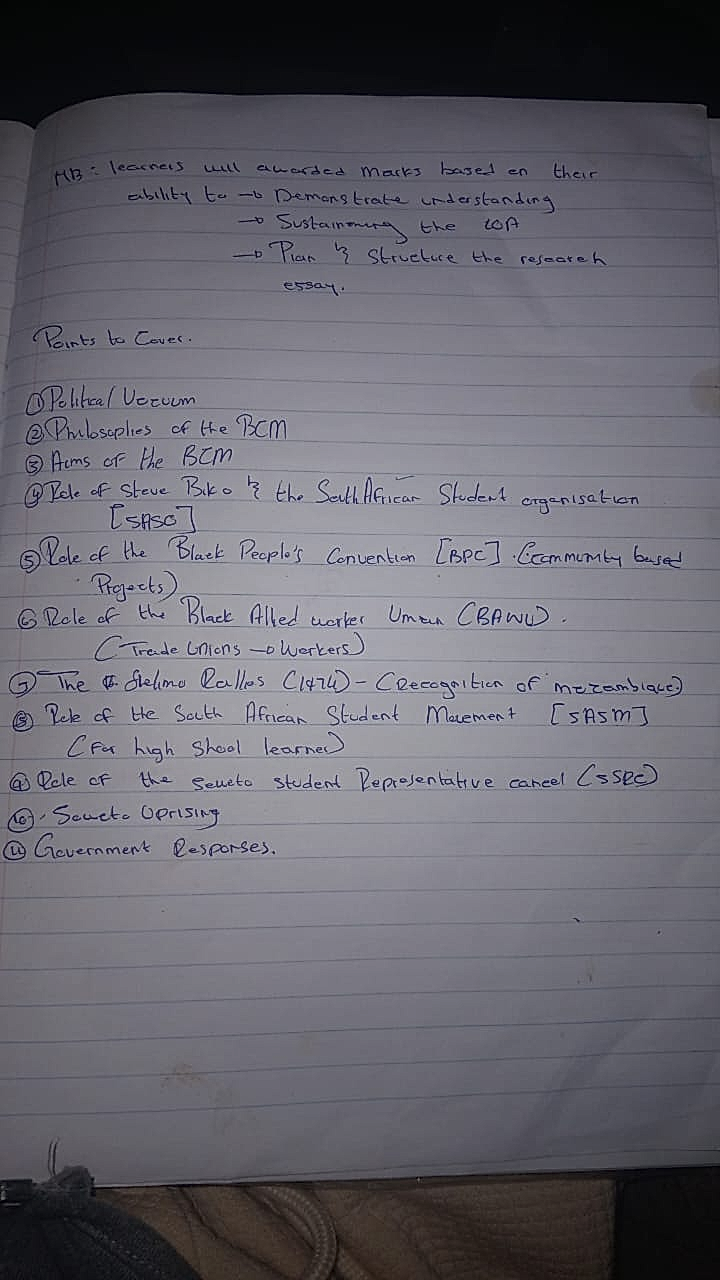 NB: learners will awarded marks based on their
ability to → Demonstrate understanding
→ Sustainining the LOA
→ Plan & Structure the research
essay.
Points to Cover.
① Political Vacuum
② Philosophies of the BCM
③ Aims of the BCM
④ Role of Steve Biko & the South African Student organisation
[SASO]
⑤ Role of the Black People's Convention [BPC] (Community based
Projects)
⑥ Role of the Black Allied worker Union (BAWU).
(Trade Unions → Workers)
⑦ The Frelimo Rallies (1974) - (Recognition of mozambique)
⑧ Role of the South African Student Movement [SASM]
(For high Shool learner)
⑨ Role of the Soweto student Representative cancel (SSRC)
⑩. Soweto Uprising
⑪ Government Responses.